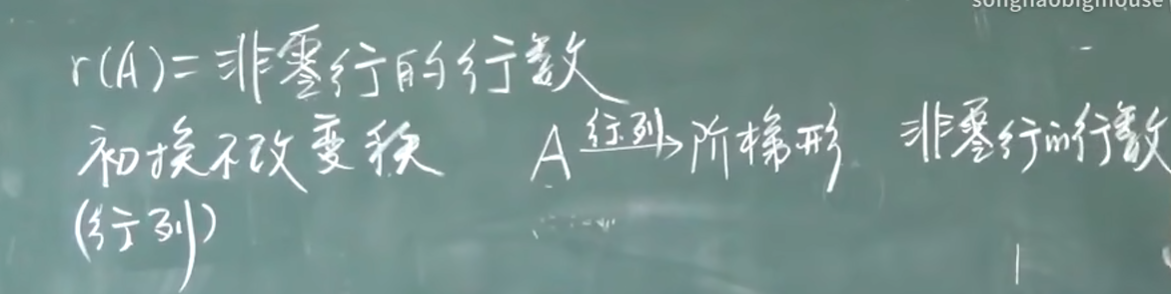 songhaobigmouse
r(A)=非零行的行数
初换不改变秩 A 行列→ 阶梯形 非零行的行数
(行列)